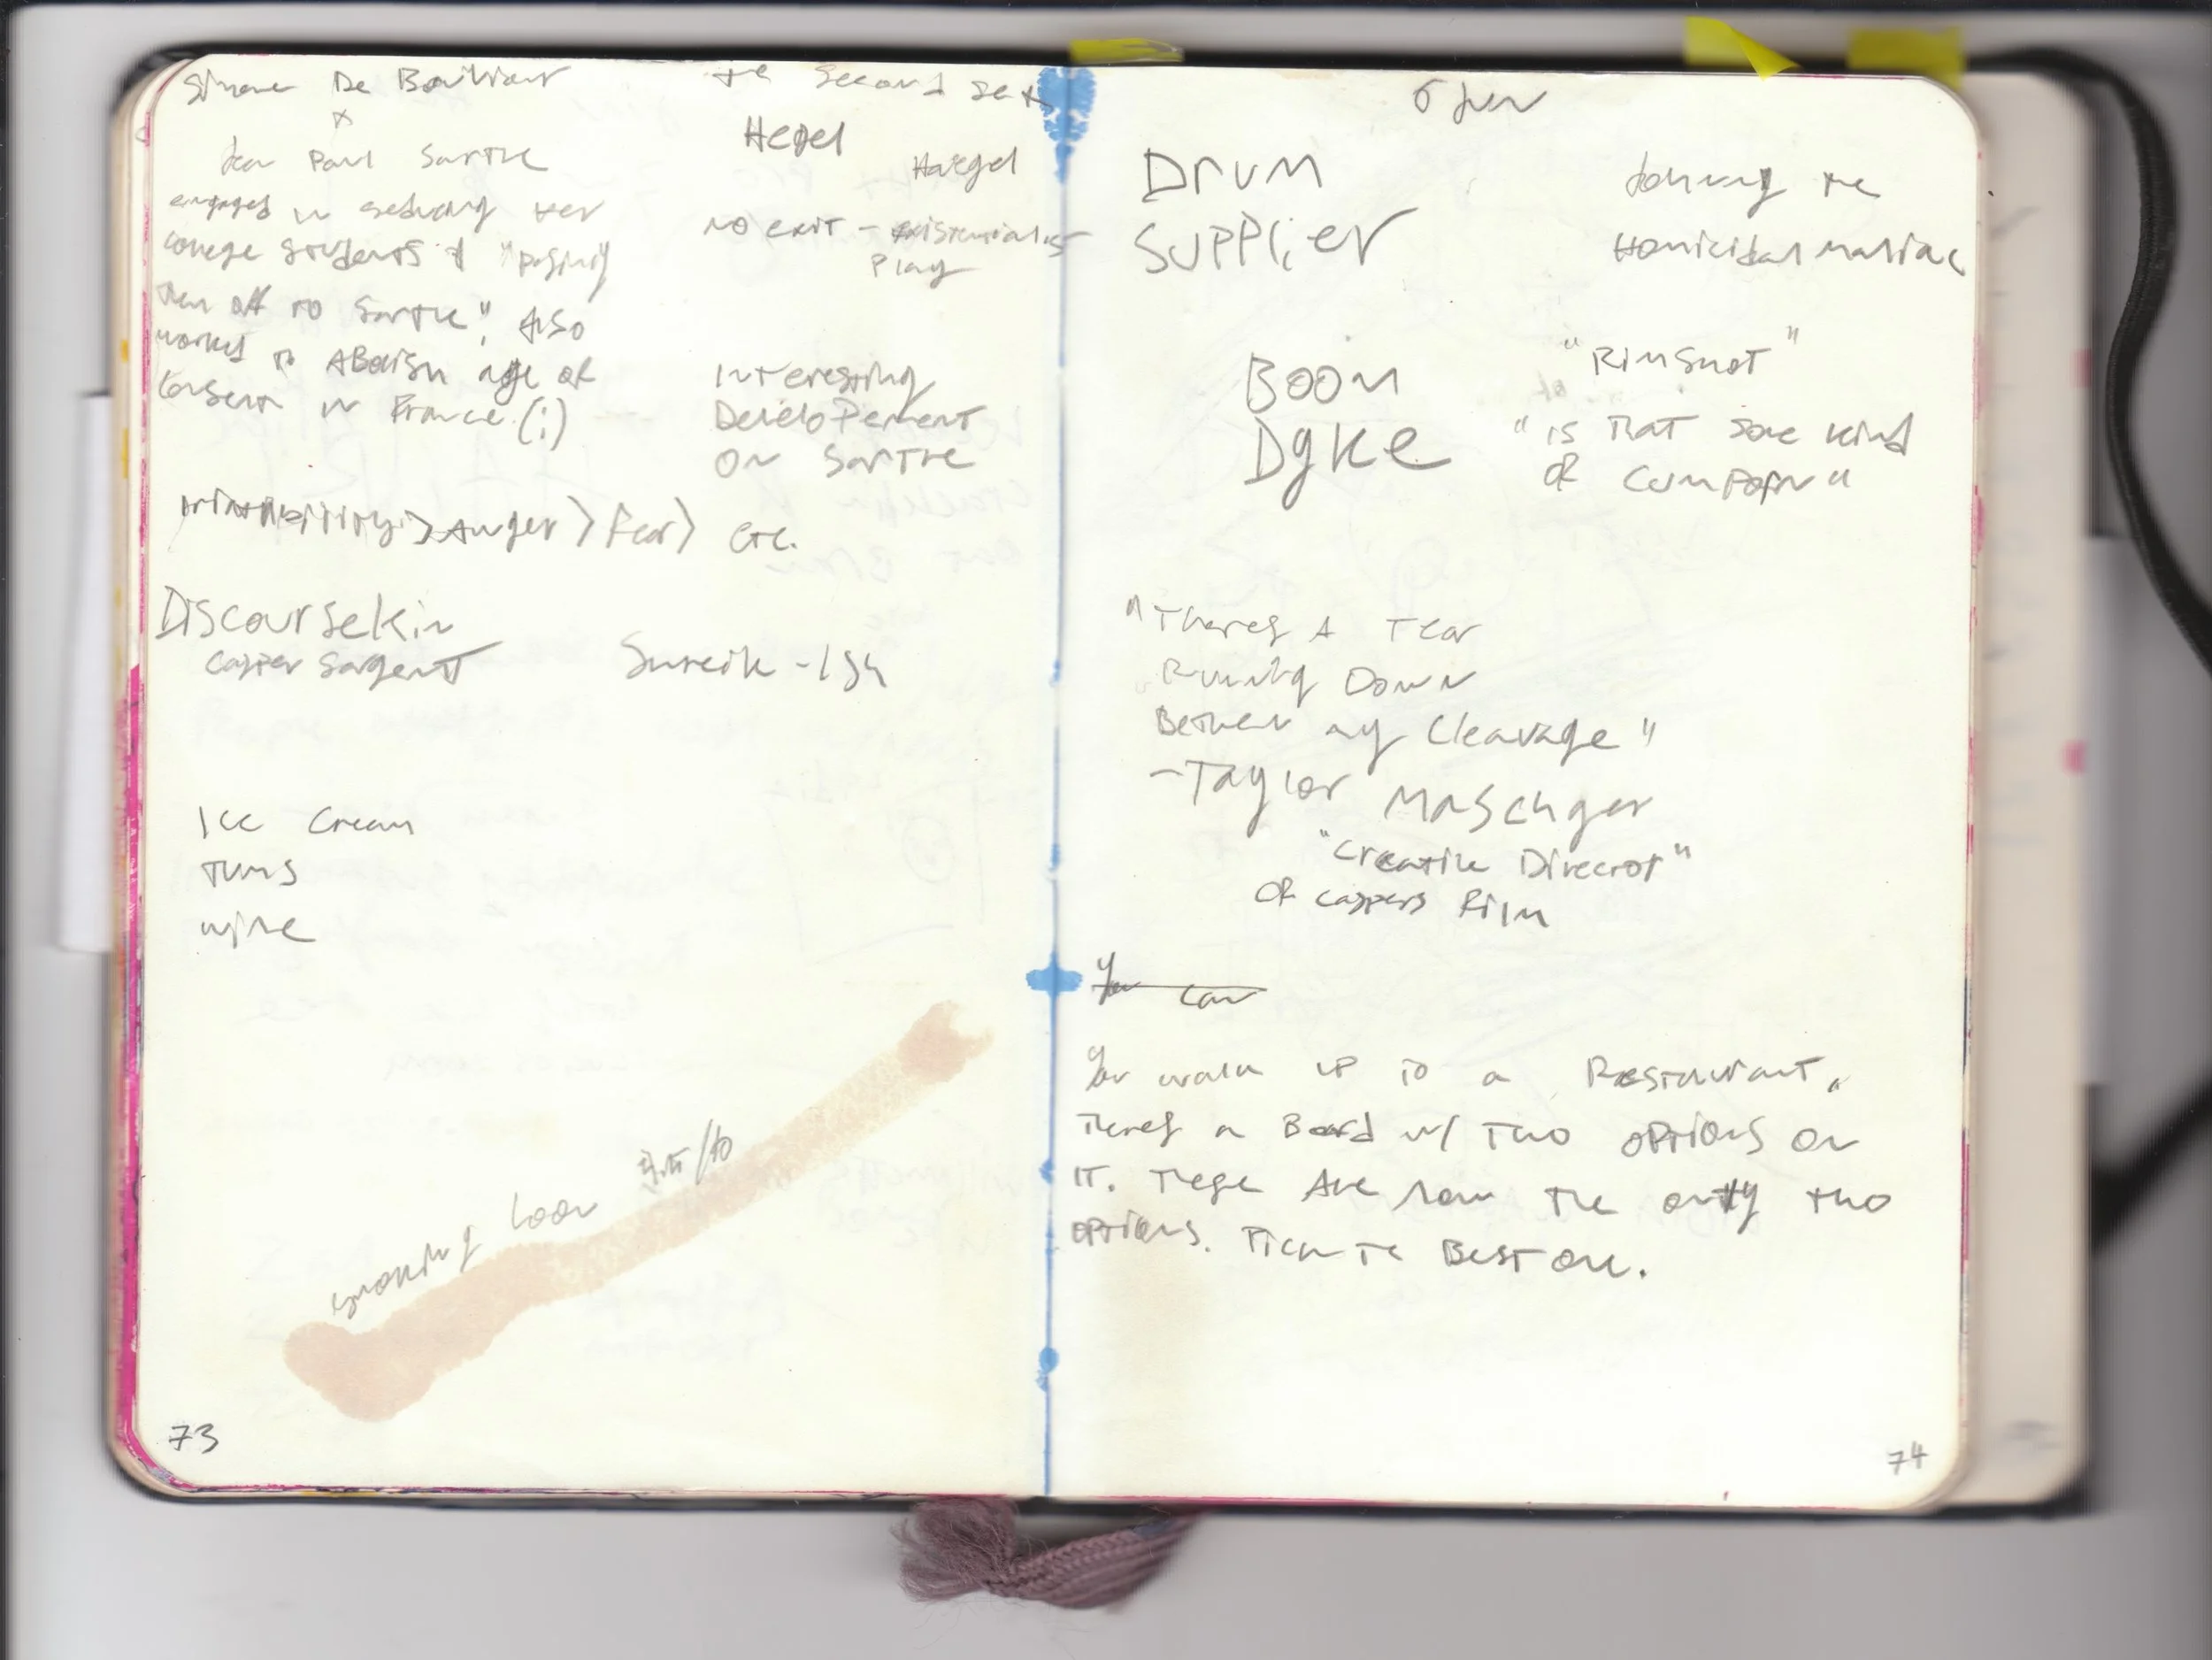 Simone De Bouliour
The Second Sex
&
Jean Paul Sartre
Hegel
Haegel
engaged in seducing her
college students & "passing
them off to Sartre", Also
worked to ABolish age of
Consent in France (;)
NO EXIT - existentialist
Play
Interesting
Developement
On Sartre
irritability > Anger > Fear > etc.
Discoursekin
Casper Sargent
Ice Cream
Tums
wine
smoking loon
73
6 Jun
Drum
Supplier
Johnny the
Homicidal maniac
Boom
Dyke
"Rimshot"
"is that some kind
of cumpop"
"Theres A Tear
Running Down
Between my Cleavage"
- Taylor Maschger
"Creative Director"
Of Caspers Film
You can
You walk up to a Restaurant.
Theres a Board w/ Two options on
it. These Are now the only two
options. Pick the Best one.
74